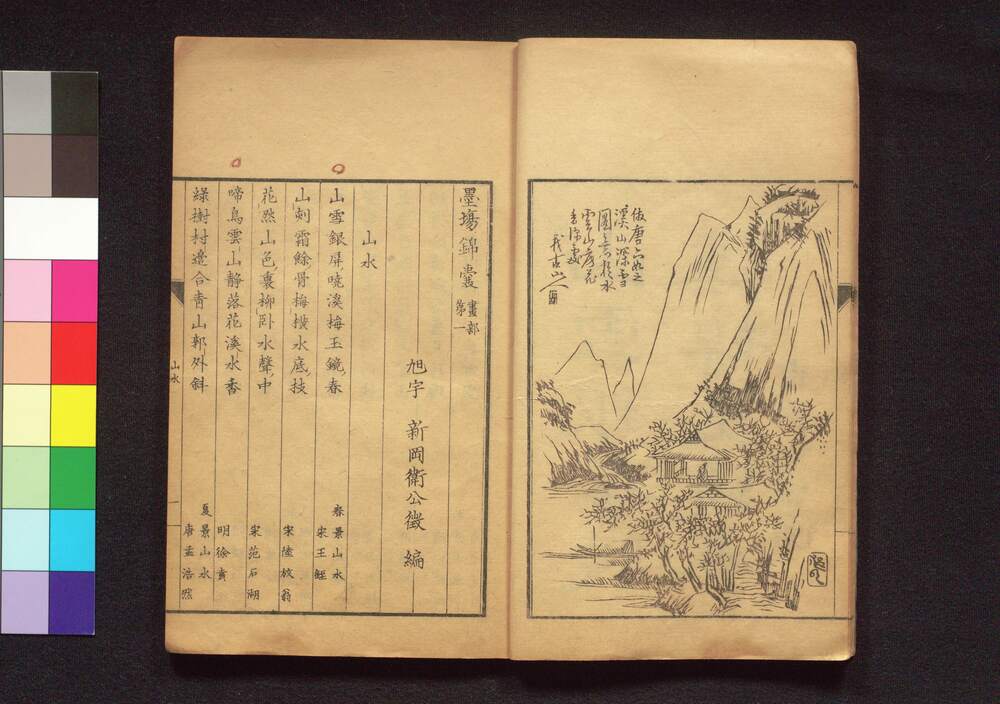 倣唐六如之
溪山深雪
雲山
墨場錦囊 畫部第一
旭宇 新岡衛公徵 編
山水
山雪銀屏曉溪梅玉鏡春 春景山水 宋王銍
山刻霜餘骨梅橫水底枝 宋陸放翁
花然山色裏柳臥水聲中 宋范石湖
啼鳥雲山靜落花溪水香 明徐賁
綠樹村邊合青山郭外斜 夏景山水 唐孟浩然
山水
一